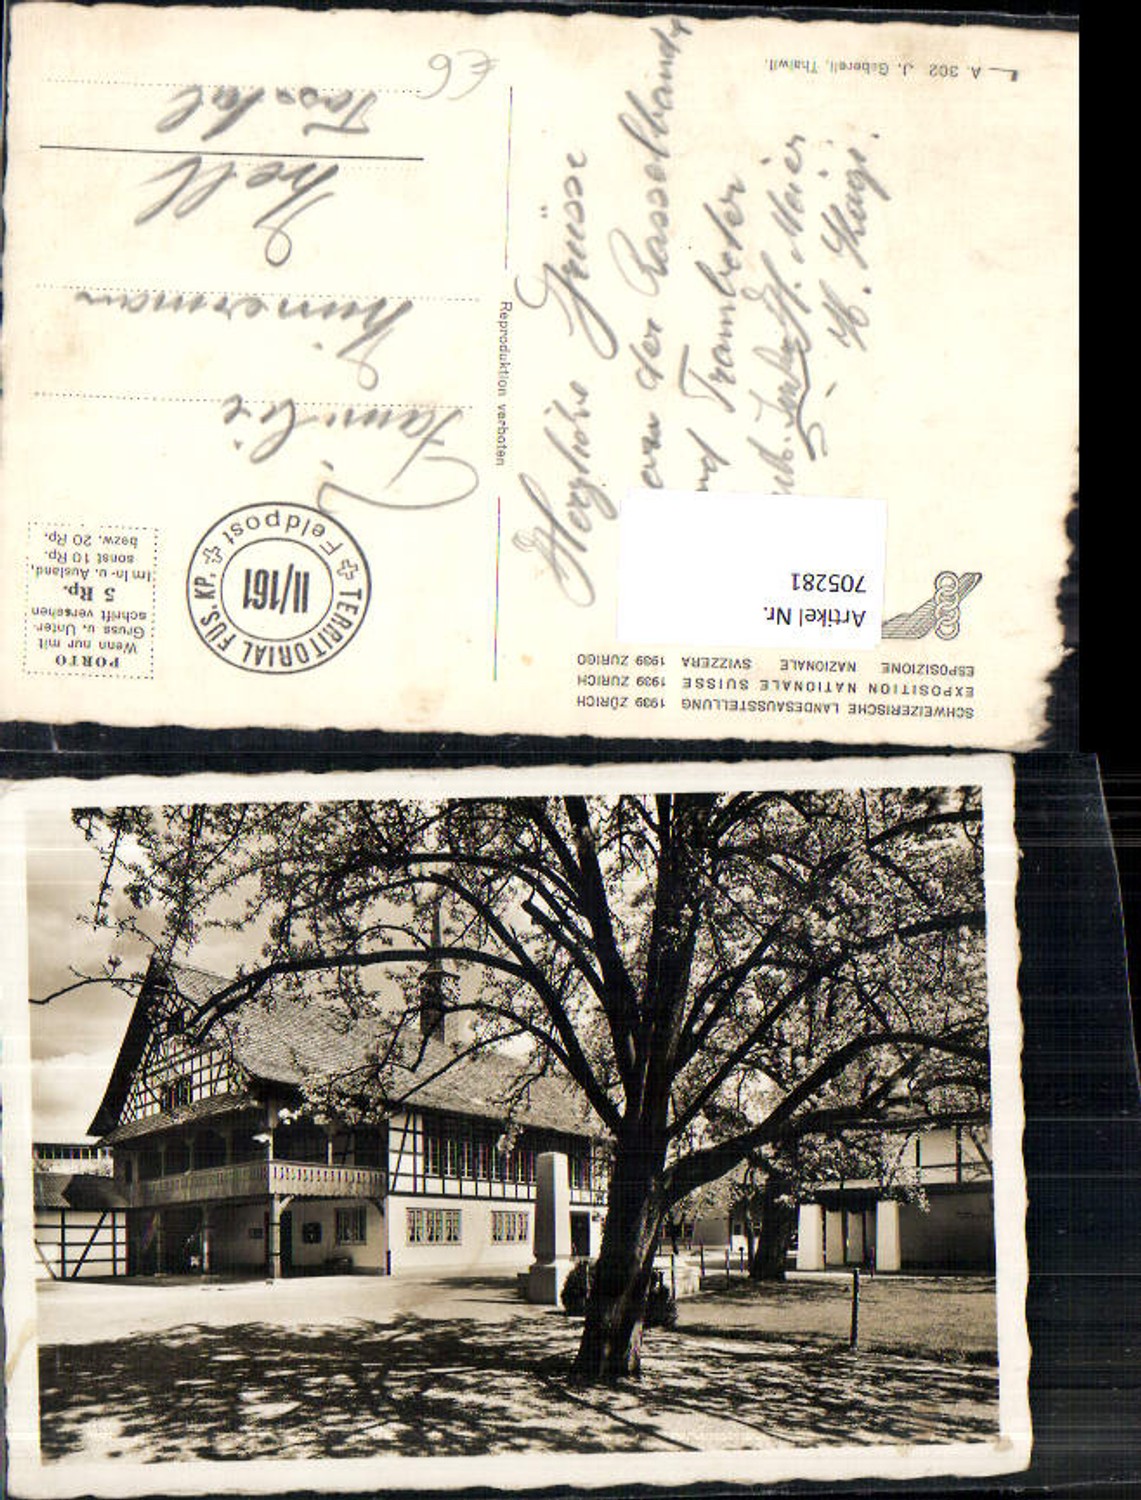 SCHWEIZERISCHE LANDESAUSSTELLUNG 1939 ZÜRICH
EXPOSITION NATIONALE SUISSE 1939 ZURICH
ESPOSIZIONE NAZIONALE SVIZZERA 1939 ZURIGO
Artikel Nr.
705281
Herzliche Grüsse
der Rasselbande
Trambeter
H. Meier
A. 302 J. Gaberell, Thalwil.
Reproduktion verboten
TERRITORIAL FÜS. KP.
II/161
Feldpost
PORTO
Wenn nur mit
Gruss u. Unter-
schrift versehen
5 Rp.
Im In- u. Ausland,
sonst 10 Rp.
bezw. 20 Rp.
Familie
Hell
Tösstal
€6